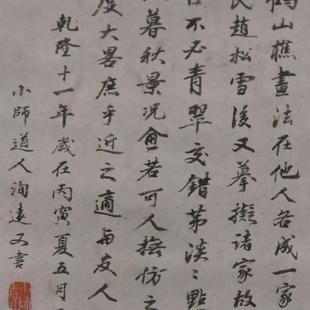 鶴山樵畫法在他人各成一家
民趙松雪後又摹擬諸家故
必青翠交錯第淡〻點
暮秋景况僉若可人撫仿之
度大畧庶乎近之適与友人
乾隆十一年歲在丙寅夏五月
小師道人洵遠又書